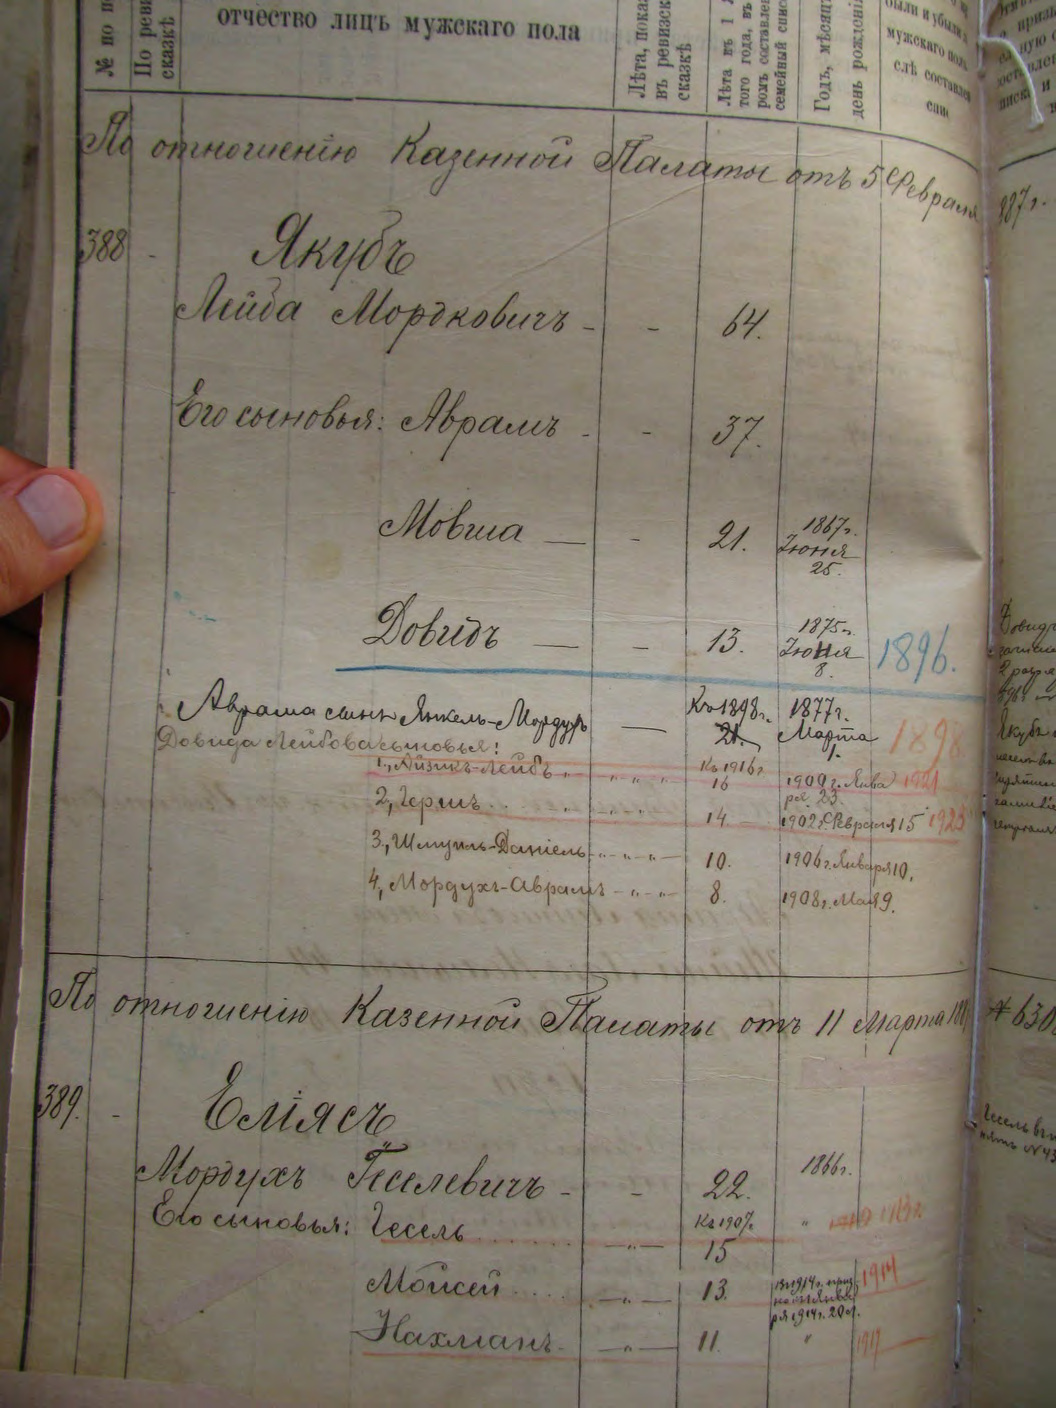 № по
По
сказкѣ
отчество лицъ мужскаго пола
Лѣта, пока
въ ревизск
сказкѣ
Лѣта въ 1
того года, въ
ромъ составлен
семейный спис
Годъ, мѣсяцъ
день рожденія
были и убыли
мужскаго пол
слѣ составле
По отношенію Казенной Палаты отъ 5 Февраля
887 г.
388 - Якубъ
Лейба Мордковичъ - - 64.
Его сыновья: Аврамъ - - 37.
Мовша — - 21. 1867г. Іюня 25.
Довидъ — - 13. 1875г. Іюня 8. 1896.
Аврама сынъ Янкель-Мордухъ — Къ 1898г. 21. 1877г. Марта 1. 1898
Довида Лейбова сыновья:
1., Айзикъ-Лейбъ „ „ „ „ — Къ 1916г 16 1900г. Янва ря 23. 1921
2, Гершъ . . . „ „ „ „ — 14 — 1902г. Февраля 15 1923
3., Шмуиль-Даніель „ „ „ — 10. 1906г. Января 10.
4, Мордухъ-Аврамъ - „ - „ - 8. 1908г. Мая 9.
По отношенію Казенной Палаты отъ 11 Марта
№ 630
389. - Еліясъ
Мордухъ Геселевичъ - - 22. 1866г.
Его сыновья: Гесель . . . . . — „ — Къ 1907г. 15 „
Мойсей . . . . — „ — 13. 1914г. 20 1914
Нахманъ. — „ — 11. „